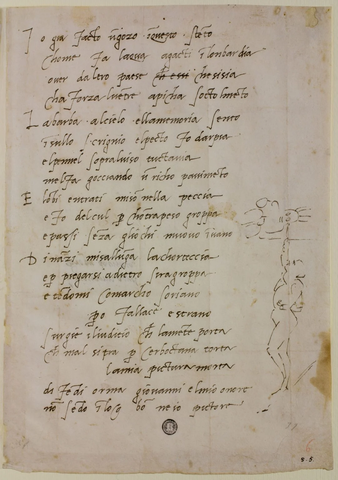 I o gia facto ũgozo inquesto stẽto
chome fa lacqua agacti ilombardia
over daltro paese che essi chesisia
cha forza luetre apicha socto lmẽto
L abarba alcielo ellamemoria sento
isullo scrignio elpecto fo darpia
elpennel sopraluiso tuctavia
melfa gocciando ũ richo pavimẽto
E lobi entrati misõ nella peccia
e fo delcul p chõtrapeso groppa
epassi sẽza gliochi muovo ivano
D inãzi misalluga lachoreccia
ep piegarsi adietro siragroppa
e tendomi comarcho soriano
po fallace estrano
surgie iliuditio ch lamẽte porta
ch mal sitra p cerboctana torta
lamia pictura morta
difedi orma giovanni elmio onore
nõ sẽdo ilog bõ ne io pictore